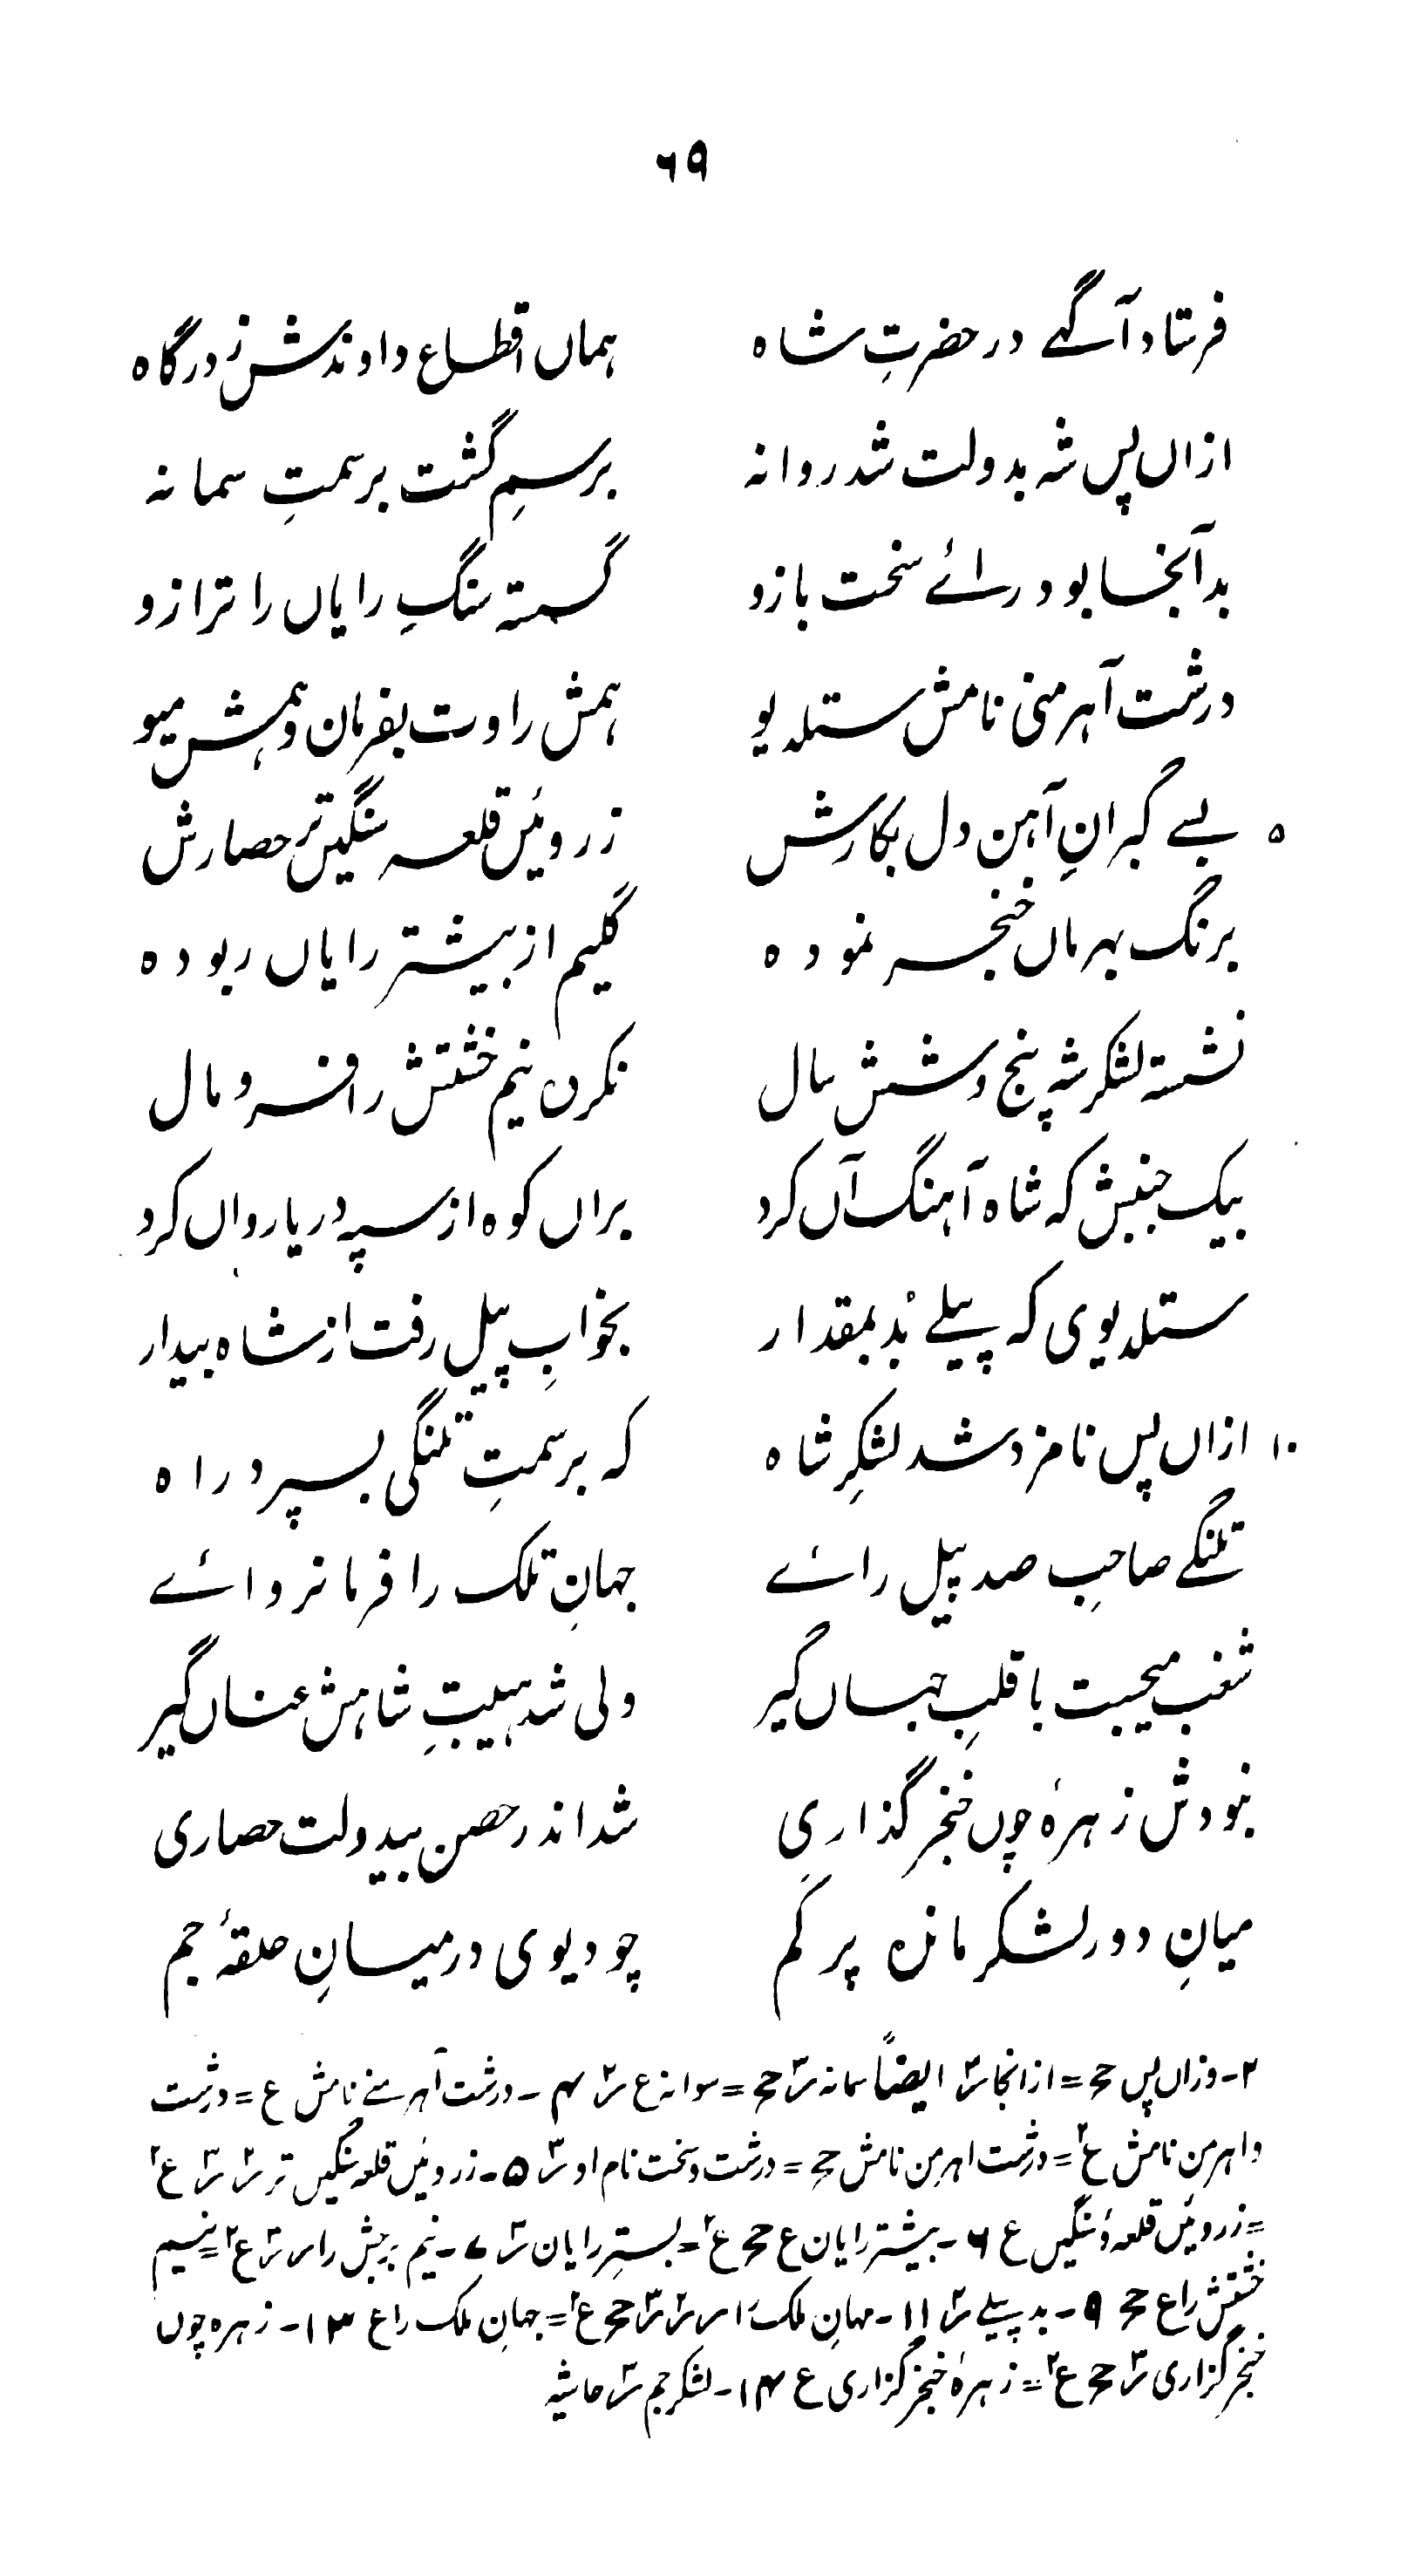 ٦٩
فرستاد آگہے در حضرتِ شاہ ہماں اقطاع دادندش ز درگاہ
ازاں پس شہ بدولت شد روانہ برسمِ گشت بر سمتِ سمانہ
بدآنجا بود رائے سخت بازو گسستہ سنگِ رایاں را ترازو
درشت آہرمنی نامش ستلدیو ہمش راوت بفرمان و ہمش میو
۵ بسے گبرانِ آہن دل بکارش ز روئیں قلعہ سنگیں تر حصارش
برنگ بہرماں خنجر نمودہ گلیم از بیشتر رایاں ربودہ
نشستہ لشکر شہ پنج و شش سال نکردہ نیم خشتش را فرو مال
بیک جنبش کہ شاہ آہنگ آں کرد براں کوہ از سپہ دریا رواں کرد
ستلدیوی کہ پیلے بُد بمقدار بخوابِ پیل رفت از شاہ بیدار
۱۰ ازاں پس نامزد شد لشکرِ شاہ کہ بر سمتِ تلنگی بسپرد راہ
تلنگے صاحبِ صد پیل رائے جہانِ تلک را فرمانروائے
شغب میجست با قلبِ جہاں گیر ولی شد ہیبتِ شاہش عناں گیر
نبودش زہرۂ چوں خنجر گذاری شد اندر حصن بیدولت حصاری
میانِ دور لشکر ماندہ پر کم چو دیوی درمیانِ حلقۂ جم
۲۔ وزاں پس حج = ازانجا س۳ ایضاً سمانہ س۳ حج = سوانہ ع س۲ ۴۔ درشت آہرمنے نامش ع = درشت
و اہرمن نامش ع۲ = درشت اہرمن نامش حج = درشت و سخت نام او س۳ ۵۔ ز روئیں قلعہ سنگیں تر س۲ س۳ ع۲
= ز روئیں قلعہ و سنگیں ع ۶۔ بیشتر رایان ع حج ع۲ = بستر رایان س۳ ۷۔ نیم برجش را س س۲ ع۲ = نیم
خشتش را ع حج ۹۔ بد پیلے س۲ ۱۱۔ مہانِ ملک را س س۲ س۳ حج ع۲ = جہانِ ملک را ع ۱۳۔ زہرہ چوں
خنجر گزاری س۳ حج ع۲ = زہرۂ خنجر گزاری ع ۱۴۔ لشکر جم س۳ حاشیہ